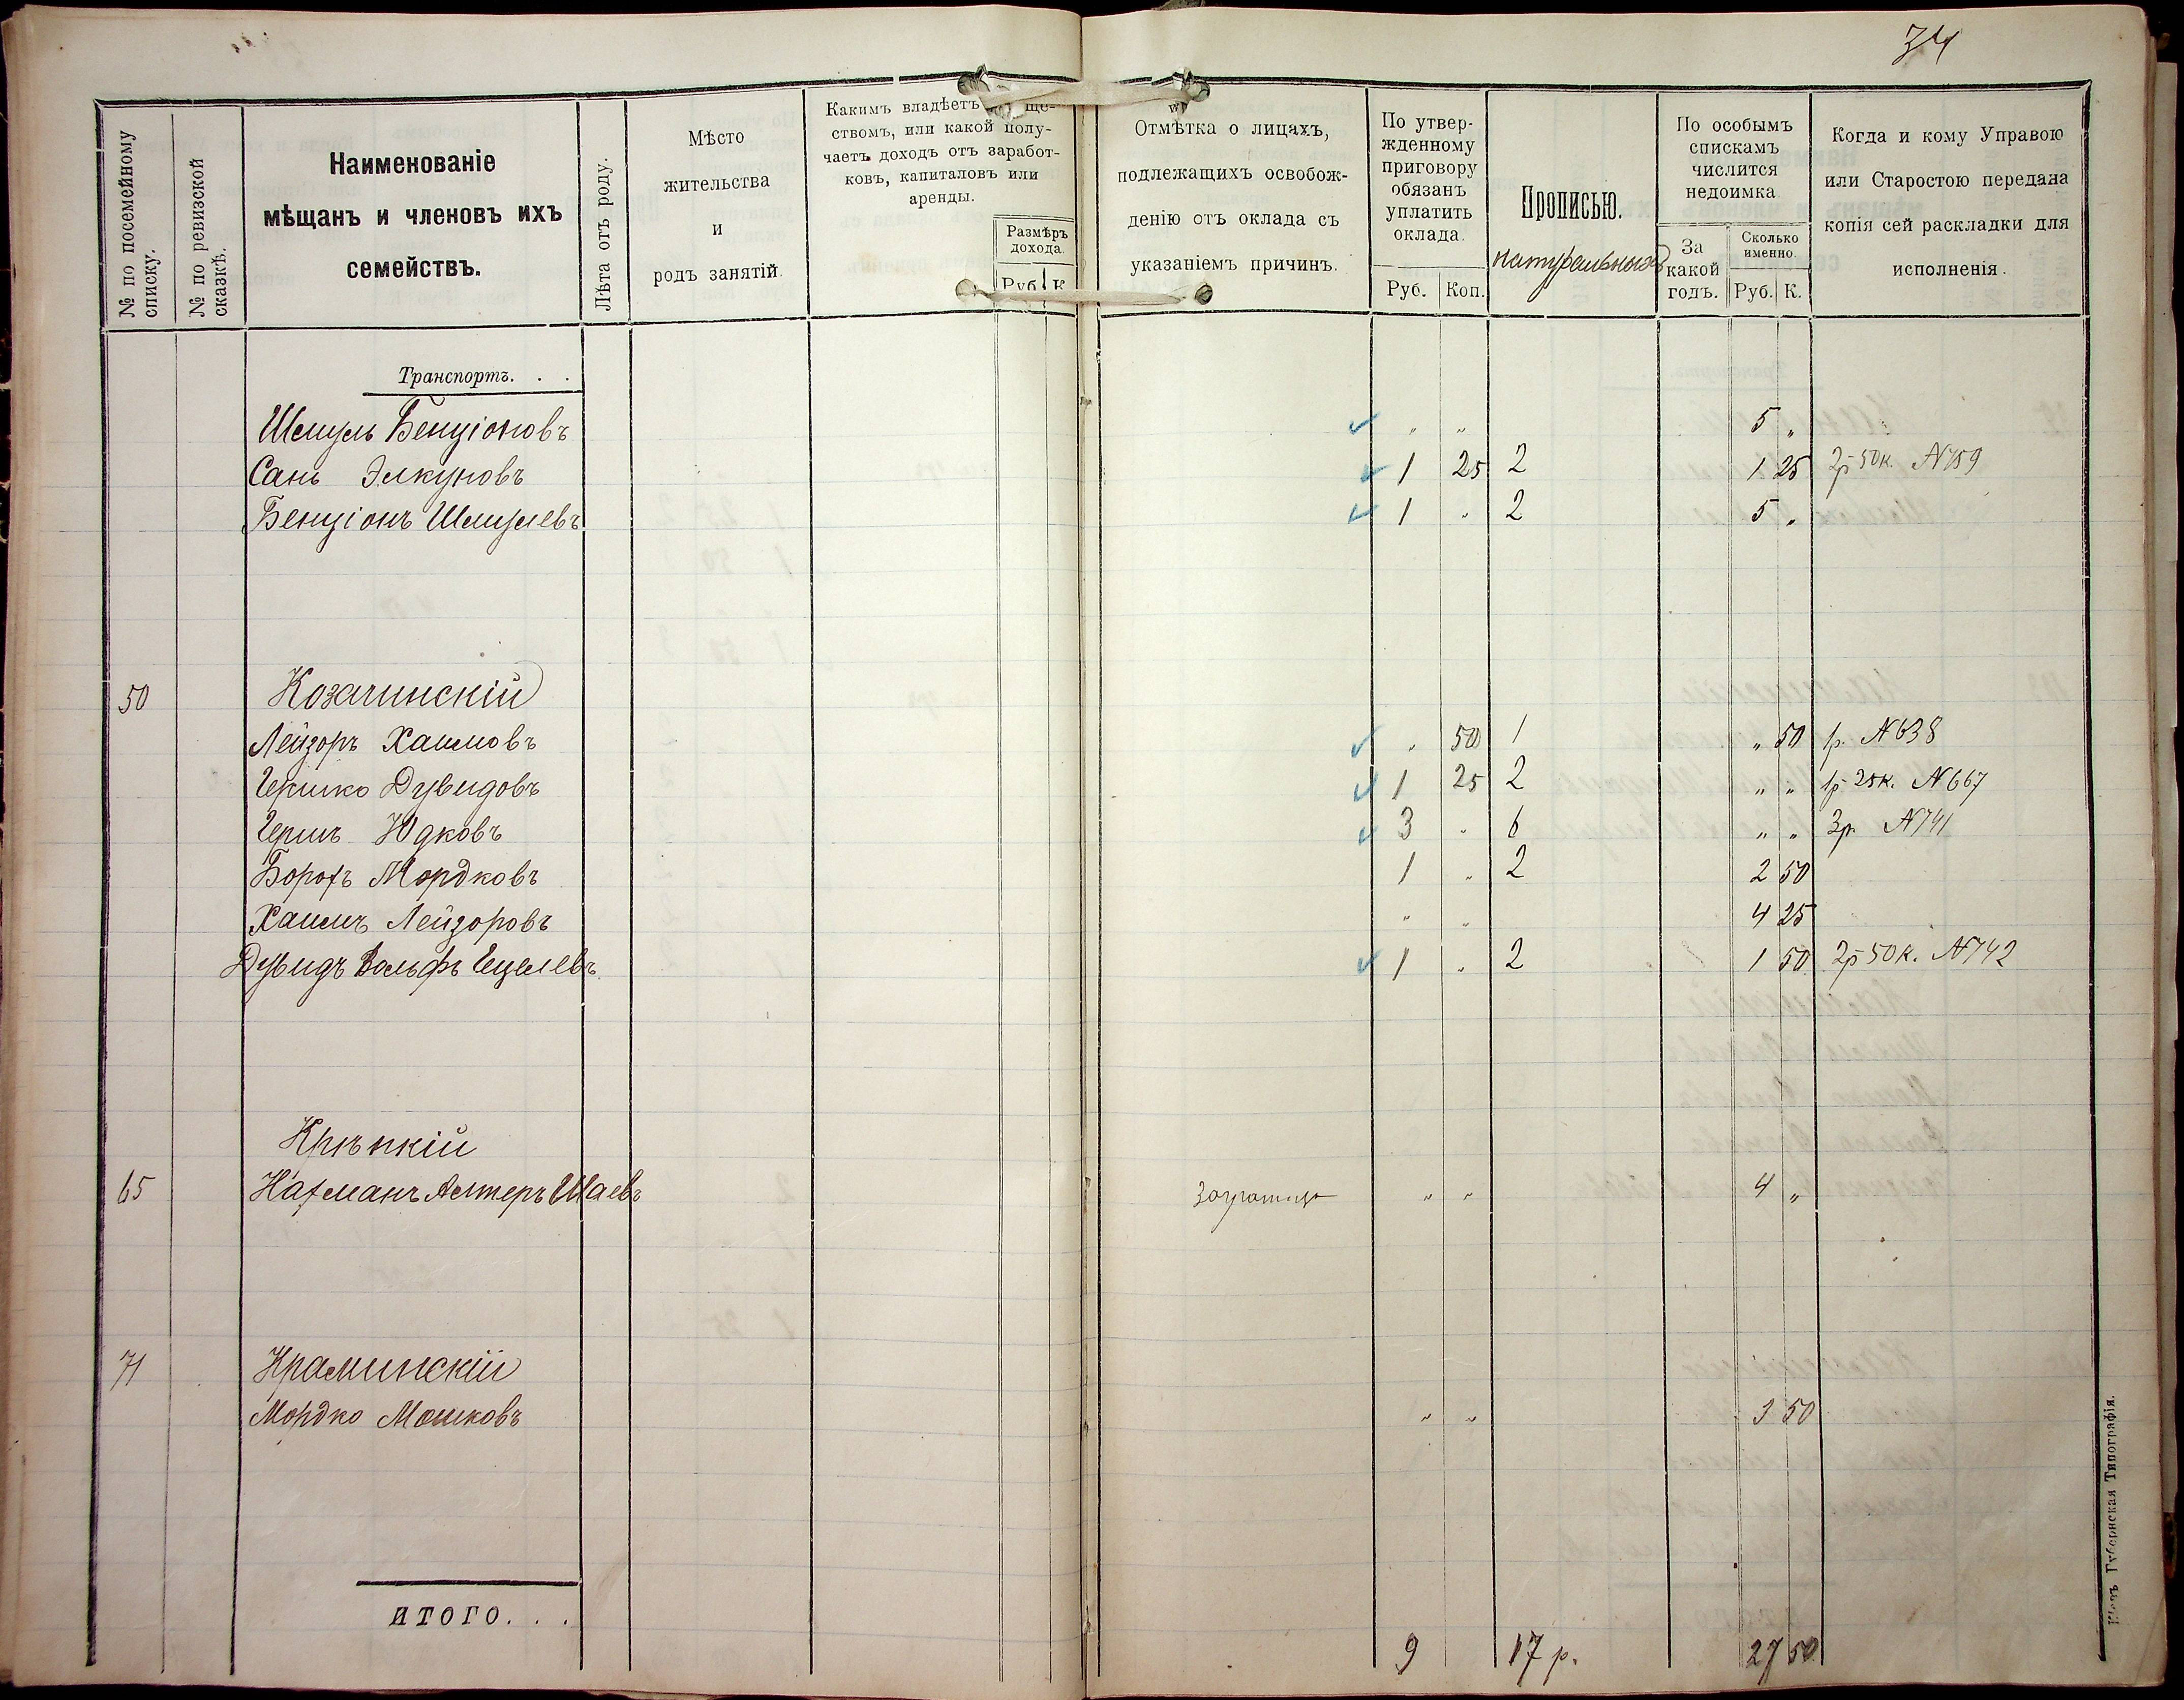 34
№ по посемейному списку.
№ по ревизской сказкѣ.
Наименованіе
мѣщанъ и членовъ ихъ
семействъ.
Лѣта отъ роду.
Мѣсто
жительства
и
родъ занятій.
Какимъ владѣетъ ще-
ствомъ, или какой полу-
чаетъ доходъ отъ заработ-
ковъ, капиталовъ или
аренды.
Размѣръ
дохода.
Руб. К.
Отмѣтка о лицахъ,
подлежащихъ освобож-
денію отъ оклада съ
указаніемъ причинъ.
По утвер-
жденному
приговору
обязанъ
уплатить
оклада.
Руб. Коп.
Прописью.
натуральныхъ
По особымъ
спискамъ
числится
недоимка.
За
какой
годъ.
Сколько
именно.
Руб. К.
Когда и кому Управою
или Старостою передана
копія сей раскладки для
исполненія.
Транспортъ. . .
Шмуль Бенціоновъ " " 5 "
Сань Элкуновъ 1 25 2 1 25 2р 50к. №759
Бенціонъ Шмулевъ 1 " 2 5 "
50 Козачинскій
Лейзоръ Хаимовъ " 50 1 " 50 1р. №638
Гершко Дувидовъ 1 25 2 " " 1р 25к. №667
Гершъ Юдковъ 3 " 6 " " 3р №741
Борохъ Мордковъ 1 " 2 2 50
Хаимъ Лейзоровъ " " 4 25
Дувидъ Вольфъ Ецелевъ 1 " 2 1 50 2р 50к. №742
Крѣпкій
65 Нахманъ Алтеръ Шаевъ Заграница " " 4 "
71 Краминскій
Мордко Мошковъ " " 3 50
ИТОГО. . .
9 17 р. 27 50
Кіевъ Губернская Типографія.